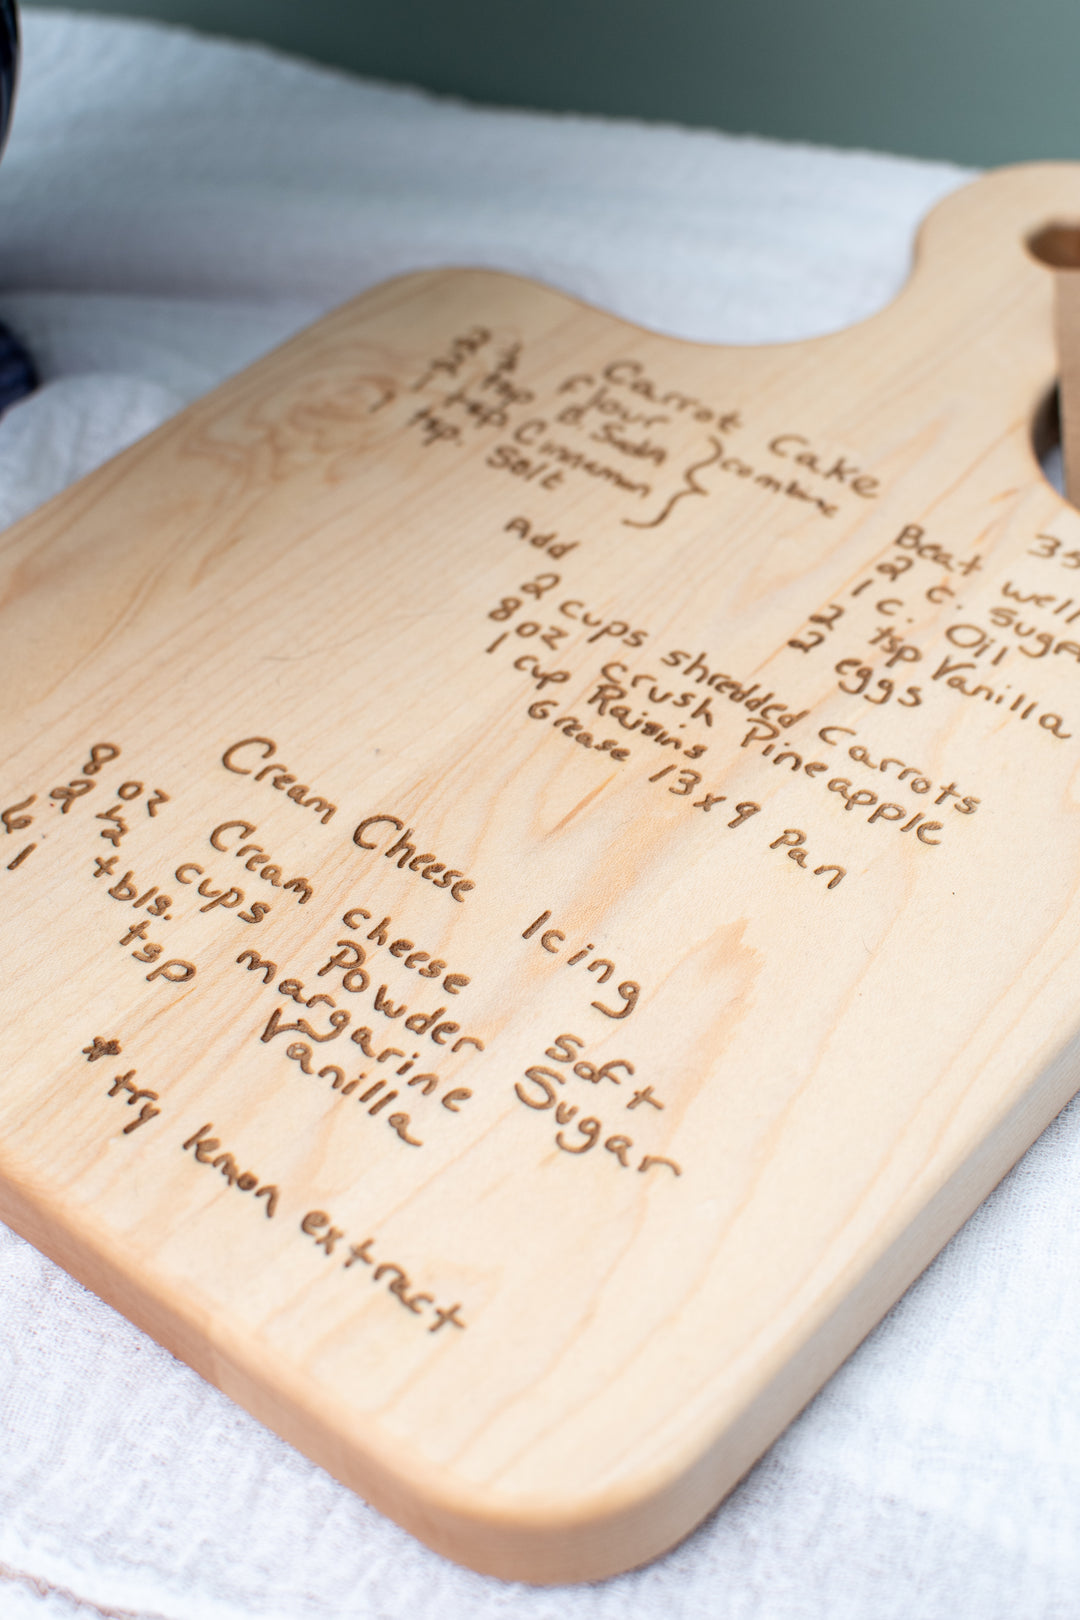 Carrot Cake
2 ½ flour
2 tsp B. Soda
2 tsp Cinnamon } combine
1 tsp. Salt
35
Beat well
2 c. Suga
1 c. Oil
2 tsp Vanilla
2 eggs
Add
2 cups shredded carrots
8 oz crush Pineapple
1 cup Raisins
Grease 13x9 Pan
Cream Cheese Icing
8 oz Cream cheese Soft
2 ½ cups Powder Sugar
6 tbls. margarine
1 tsp Vanilla
* try lemon extract